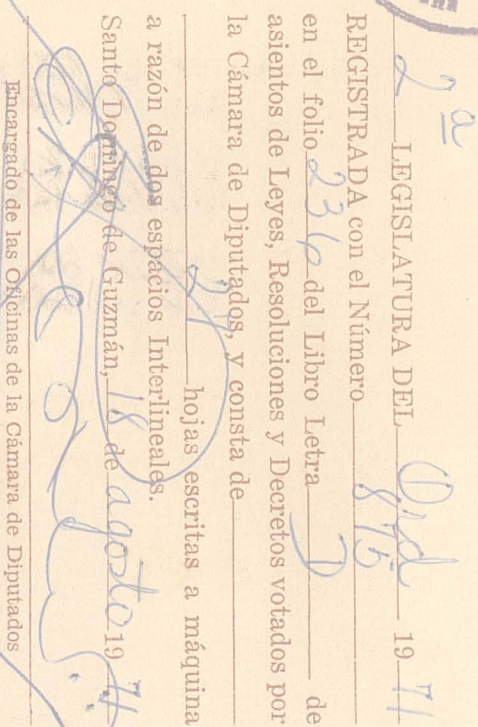 2ª LEGISLATURA DEL Ord 1971
REGISTRADA con el Número 875
en el folio 236 del Libro Letra J de
asientos de Leyes, Resoluciones y Decretos votados por
la Cámara de Diputados, y consta de
hojas escritas a máquina
a razón de dos espacios Interlineales.
Santo Domingo de Guzmán, 18 de agosto 1971
Encargado de las Oficinas de la Cámara de Diputados